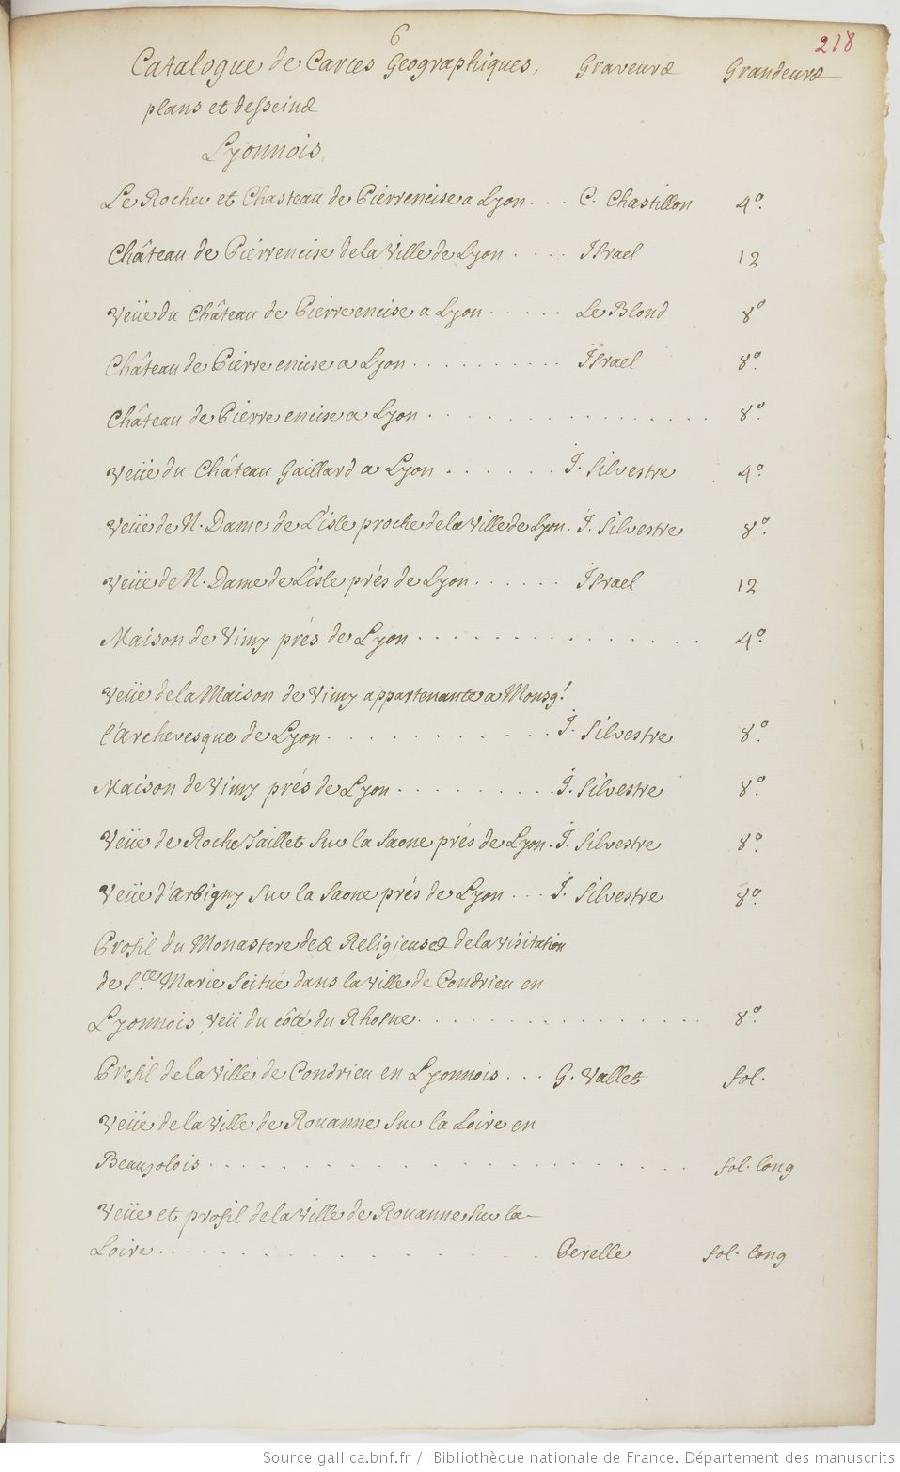 6
218
Catalogue de Cartes Geographiques, Graveurs Grandeurs
plans et desseins
Lyonnois
Le Rocher et Chasteau de Pierrencise a Lyon. . . C. Chastillon 4º.
Château de Piérrencise de la Ville de Lyon . . . . Israel 12
Veüe du Château de Pierreencise a Lyon . . . . . Le Blond 8º
Château de Pierre encise a Lyon . . . . . . . . . . Israel 8º.
Château de Pierre encise a Lyon . . . . . . . . . . . . . . . . . 8º.
Veüe du Château Gaillard a Lyon . . . . . . I. Silvestre 4º.
Veüe de N. Dame de L'isle proche de la Ville de Lyon. I. Silvestre 8º.
Veüe de N. Dame de L'isle prés de Lyon . . . . . . Israel 12
Maison de Vimy prés de Lyon . . . . . . . . . . . . . . . . . 4º.
Veüe de la Maison de Vimy appartenante a Monsgr.
l'Archevesque de Lyon . . . . . . . . . . . . I. Silvestre 8º.
Maison de Vimy prés de Lyon . . . . . . . . . I. Silvestre 8º.
Veüe de Roche Taillet sur la Saone prés de Lyon. I. Silvestre 8º.
Veüe d'Arbigny sur la Saone prés de Lyon . . . I. Silvestre 8º.
Profil du Monastere des Religieuses de la Visitation
de Ste. Marie scitué dans la ville de Condrieu en
Lyonnois, veü du côté du Rhosne . . . . . . . . . . . . . . . . 8º.
Profil de la Ville de Condrieu en Lyonnois . . . G. Vallet fol.
Veüe de la Ville de Rouanne sur la Loire en
Beaujolois . . . . . . . . . . . . . . . . . . . . . . . . fol. long
Veüe et profil de la Ville de Rouanne sur la
Loire . . . . . . . . . . . . . . . . . . . . Perelle fol. long
Source gallica.bnf.fr / Bibliothèque nationale de France. Département des manuscrits